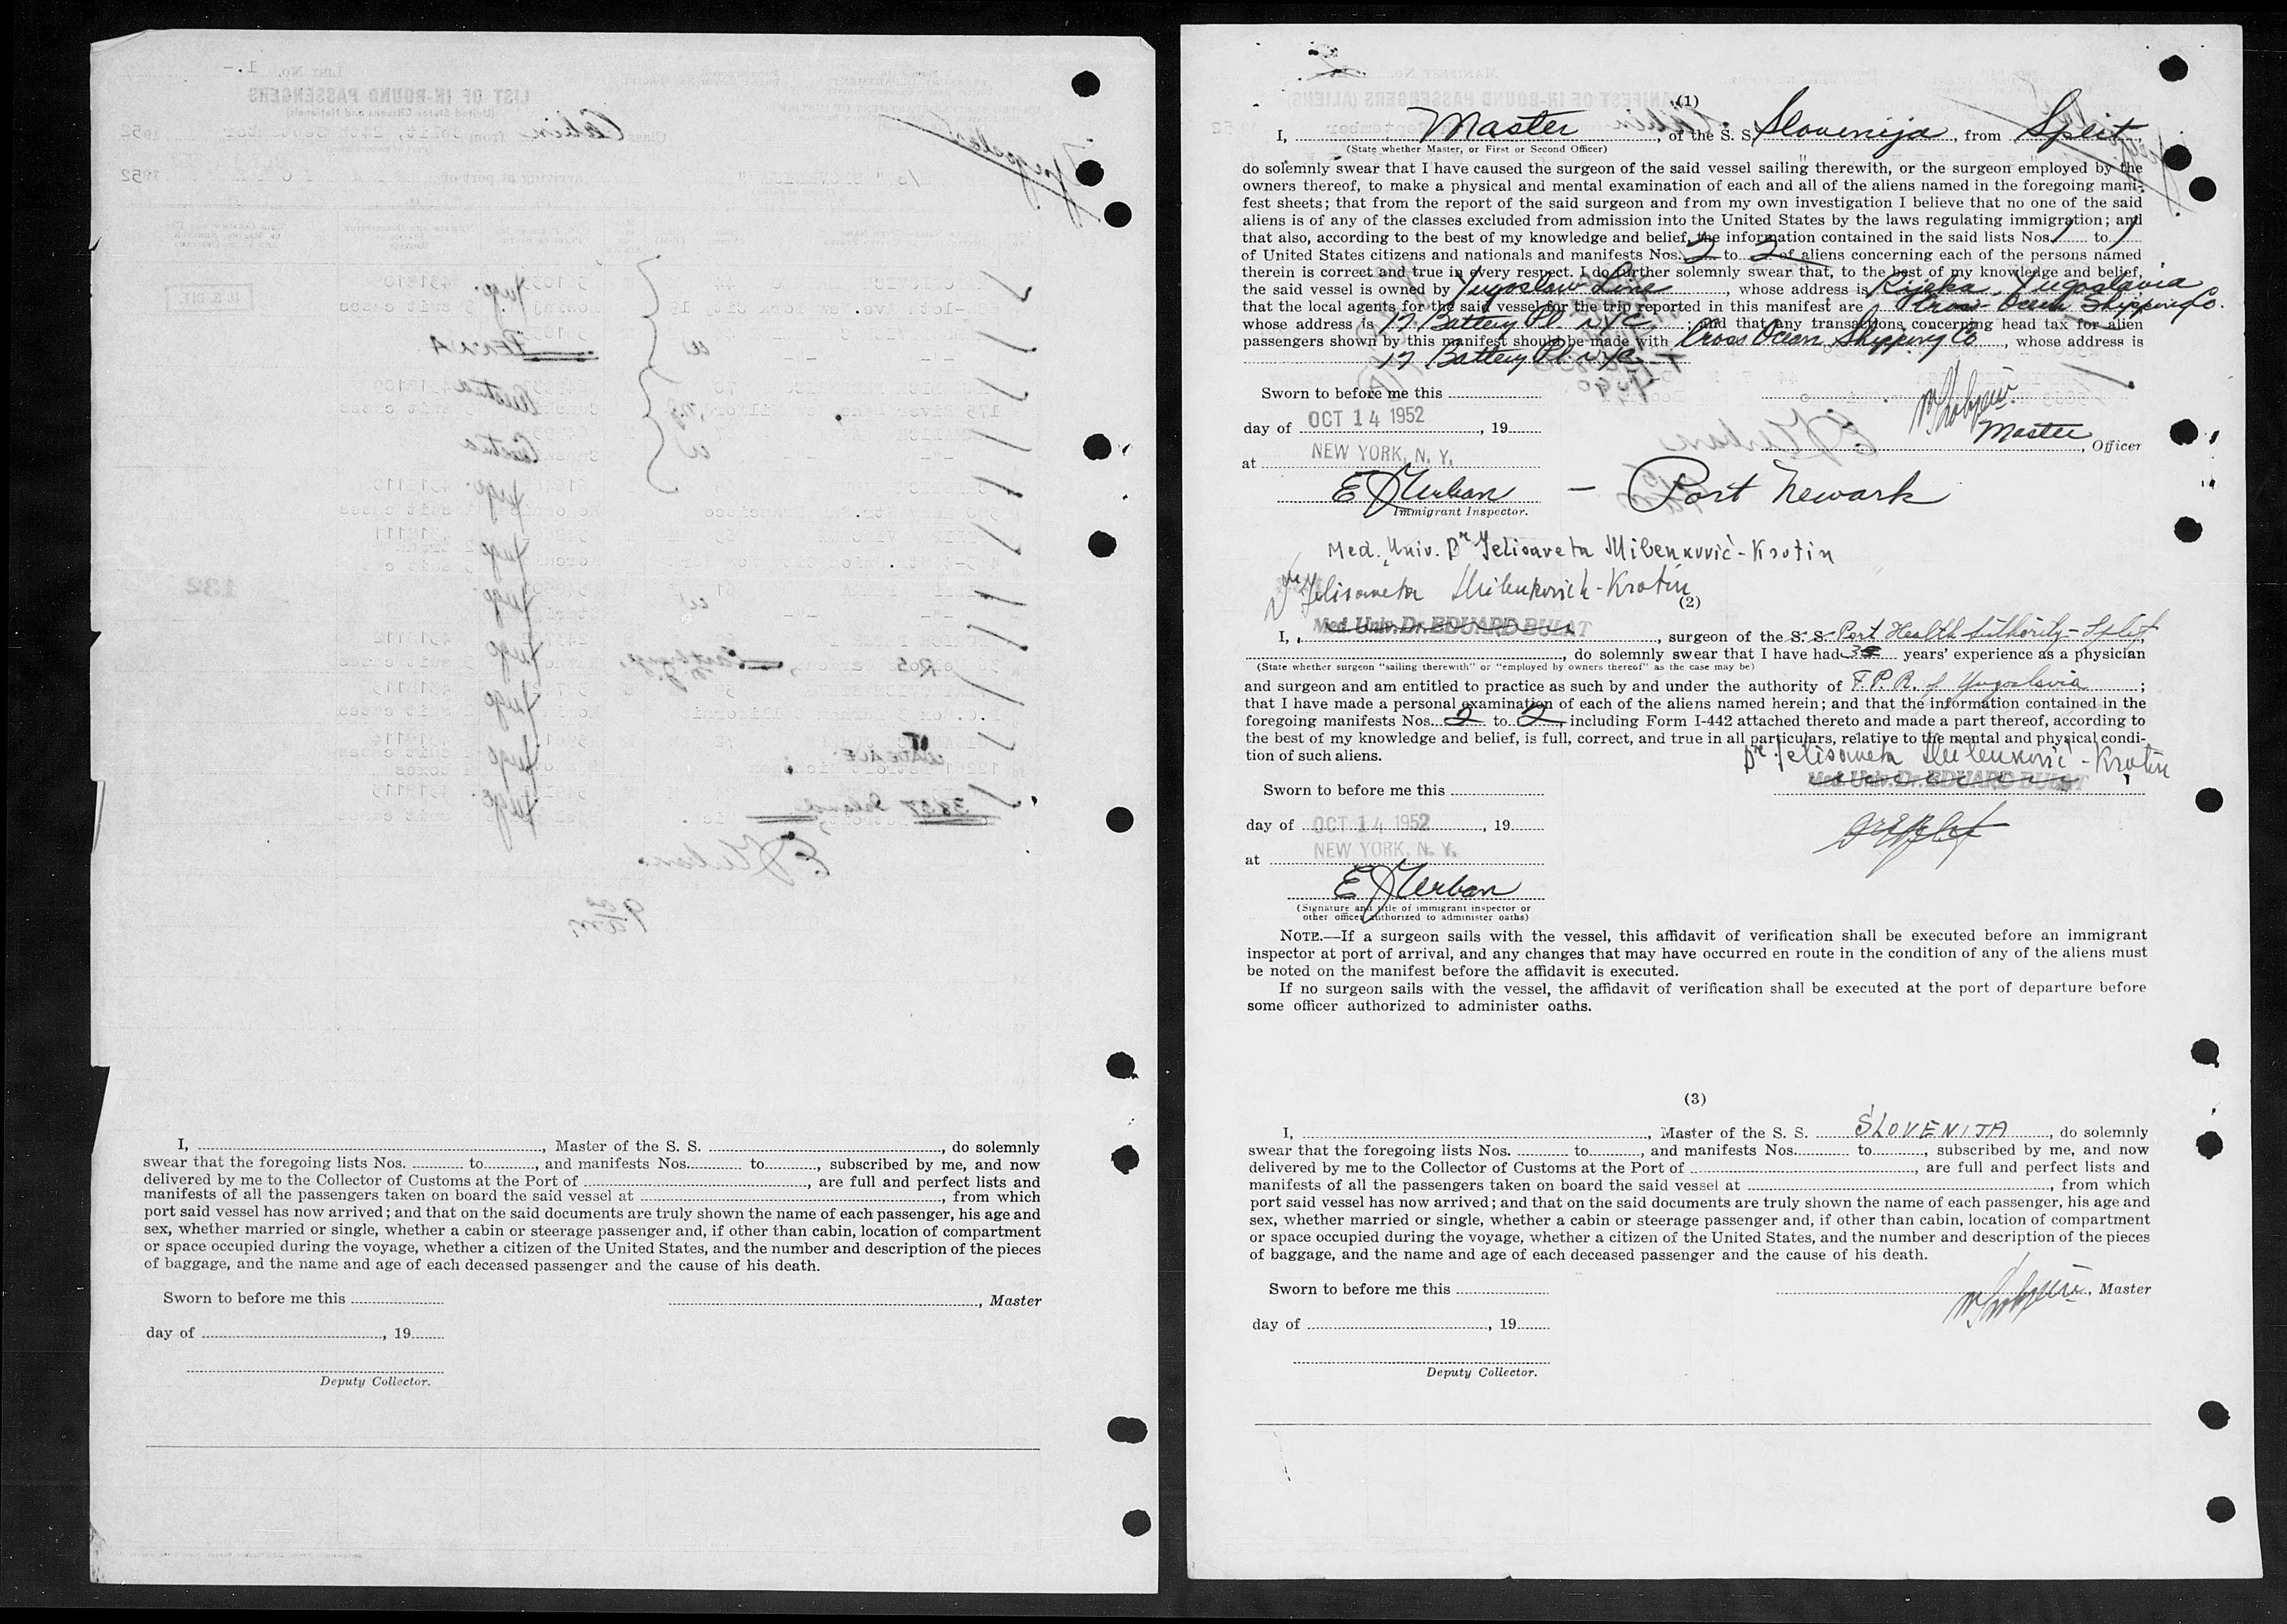 I, ______, Master of the S. S. ______, do solemnly
swear that the foregoing lists Nos. ______ to ______, and manifests Nos. ______ to ______, subscribed by me, and now
delivered by me to the Collector of Customs at the Port of ______, are full and perfect lists and
manifests of all the passengers taken on board the said vessel at ______, from which
port said vessel has now arrived; and that on the said documents are truly shown the name of each passenger, his age and
sex, whether married or single, whether a cabin or steerage passenger and, if other than cabin, location of compartment
or space occupied during the voyage, whether a citizen of the United States, and the number and description of the pieces
of baggage, and the name and age of each deceased passenger and the cause of his death.
Sworn to before me this ______ ______, Master
day of ______, 19______
Deputy Collector.
(1)
I, Master, of the S. S. Slovenija, from Split
(State whether Master, or First or Second Officer)
do solemnly swear that I have caused the surgeon of the said vessel sailing therewith, or the surgeon employed by the
owners thereof, to make a physical and mental examination of each and all of the aliens named in the foregoing mani-
fest sheets; that from the report of the said surgeon and from my own investigation I believe that no one of the said
aliens is of any of the classes excluded from admission into the United States by the laws regulating immigration; and
that also, according to the best of my knowledge and belief, the information contained in the said lists Nos. 1 to 1
of United States citizens and nationals and manifests Nos. 2 to 2 of aliens concerning each of the persons named
therein is correct and true in every respect. I do further solemnly swear that, to the best of my knowledge and belief,
the said vessel is owned by Yugoslav Line, whose address is Rijeka, Yugoslavia
that the local agents for the said vessel for the trip reported in this manifest are Cross Ocean Shipping Co.
whose address is 17 Battery Pl. NYC; and that any transactions concerning head tax for alien
passengers shown by this manifest should be made with Cross Ocean Shipping Co, whose address is
17 Battery Pl. NYC
Sworn to before me this ______
day of OCT 14 1952, 19______
Master, Officer
at NEW YORK, N. Y.
E J Urban — Port Newark
Immigrant Inspector.
Med. Univ. Dr Jelisaveta Milenković-Krotin
Dr Jelisaveta Milenkovich-Krotin
(2)
I, Med. Univ. Dr. EDUARD BULAT, surgeon of the S. S. Port Health Authority - Split,
______, do solemnly swear that I have had ______ years' experience as a physician
(State whether surgeon "sailing therewith" or "employed by owners thereof" as the case may be)
and surgeon and am entitled to practice as such by and under the authority of F.P.R. of Yugoslavia;
that I have made a personal examination of each of the aliens named herein; and that the information contained in the
foregoing manifests Nos. 2 to 2 including Form I-442 attached thereto and made a part thereof, according to
the best of my knowledge and belief, is full, correct, and true in all particulars, relative to the mental and physical condi-
tion of such aliens.
Dr Jelisaveta Milenković-Krotin
Med. Univ. Dr. EDUARD BULAT
Sworn to before me this ______
day of OCT 14 1952, 19______
at NEW YORK, N. Y.
E J Urban
(Signature and title of immigrant inspector or
other officer authorized to administer oaths)
NOTE.—If a surgeon sails with the vessel, this affidavit of verification shall be executed before an immigrant
inspector at port of arrival, and any changes that may have occurred en route in the condition of any of the aliens must
be noted on the manifest before the affidavit is executed.
If no surgeon sails with the vessel, the affidavit of verification shall be executed at the port of departure before
some officer authorized to administer oaths.
(3)
I, ______, Master of the S. S. SLOVENIJA, do solemnly
swear that the foregoing lists Nos. ______ to ______, and manifests Nos. ______ to ______, subscribed by me, and now
delivered by me to the Collector of Customs at the Port of ______, are full and perfect lists and
manifests of all the passengers taken on board the said vessel at ______, from which
port said vessel has now arrived; and that on the said documents are truly shown the name of each passenger, his age and
sex, whether married or single, whether a cabin or steerage passenger and, if other than cabin, location of compartment
or space occupied during the voyage, whether a citizen of the United States, and the number and description of the pieces
of baggage, and the name and age of each deceased passenger and the cause of his death.
Sworn to before me this ______ ______, Master
day of ______, 19______
Deputy Collector.